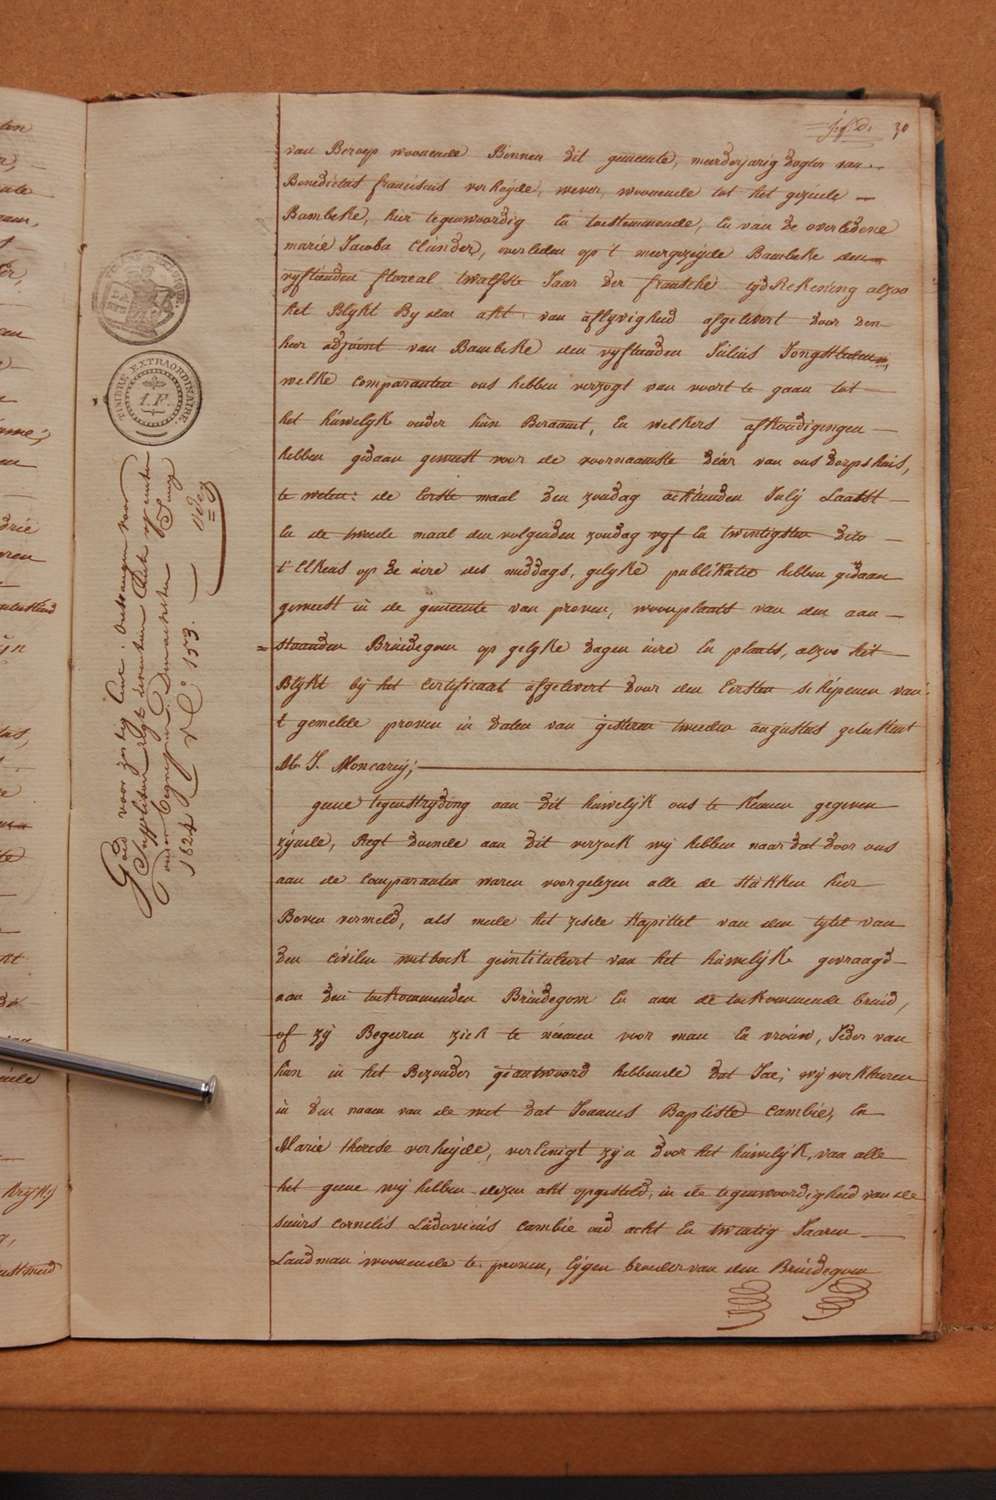 30
van Beroep woonende Binnen dit gemeente, meerderjarig dogter van
Benedictus franciscus verheijde, wever, woonende tot het gezeide
Bambeke, hier tegenwoordig en toestemmende, en van de overledene
marie Jacoba Clinder, overleden op 't meergezeijde Bambeke den
vyftienden floreal twalfste Jaar der fransche tijdRekening alzoo
het Blijkt By den akt van aflyvigheid afgelevert door den
heer adjoint van Bambeke den vyftienden Julius Jongstleden,
welke comparanten ons hebben verzogt van voort te gaan tot
het húwelijk onder hún Beraamt, en welkers afkondigingen
hebben gedaan geweest voor de voornaamste deúr van ons dorpshuis,
te weten: de Eerste maal den zondag achtienden Julij Laatst
en de tweede maal den volgenden zondag vyf en twintigsten dito
t' Elkens op de úere des middags, gelyke publikatie hebben gedaan
geweest in de gemeente van proven, woonplaats van den aan
= staanden Brúidegom op gelyke dagen úere en plaats, alzoo hét
Blijkt bij het Certificaat afgelevert door den Eersten schepenen van
't gemelde proven in daten van gisteren tweeden augustus geteekent
J. Moncarey;
geene tegenstryding aan dit húwelijk ons te kennen gegeven
zijnde, Regt doende aan dit verzoek wij hebben naar dat door ons
aan de Comparanten waren voorgelezen alle de stúkken hier
Boven vermeld, als mede het zesde kapittel van den tytel van
den civilen wetboek geintituleert van het húwelijk gevraagd
aan den toekommenden Brúidegom en aan de toekommende bruid,
of zij Begeeren zich te nemen voor man en vroúw, Jeder van
hún in het Bezonder geantwoord hebbende dat Jae; wij verkleeren
in den naam van de wet dat Joannes Baptiste Cambie, en
Marie therese verheijde, vereenigt zijn door het húwelijk, van alle
het geene wij hebben dezen akt opgesteld, in de tegenwoordigheid van de
sieurs cornelis Lúdovicús Cambie oud acht en twintig Jaaren
Landman woonende te proven, Eijgen broeder van den Brúidegom
TIMBRE EXTRAORDINAIRE.
1. F.
Goed voor zestig Cent. ontvangen voor
Suppletoir regt
1824 N.° 153.